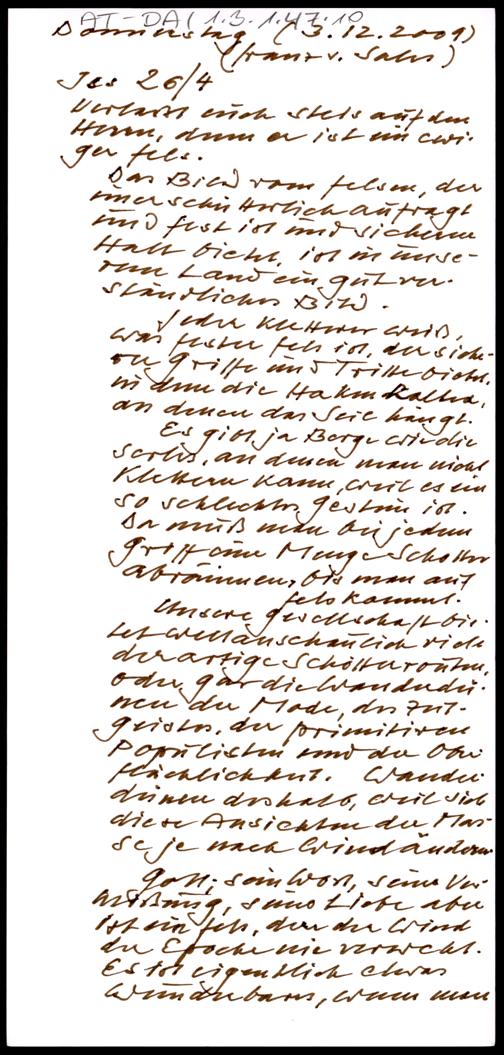 AT-DA(1.3.1.47.10
Donnerstag (3.12.2009)
(franz v. Sales)
Jes 26/4
Verlaßt euch stets auf den
Herrn, denn er ist ein ewi-
ger fels.
Das Bild vom felsen, der
unerschütterlich aufragt
und fest ist und sicheren
Halt bietet, ist in unse-
rem Land ein gut ver-
ständliches Bild.
Jeder Kletterer weiß,
was fester fels ist, der siche-
re Griffe und Tritte bietet,
in dem die Haken halten,
an denen das Seil hängt.
Es gibt ja Berge wie die
Serles, an denen man nicht
klettern kann, weil es ein
so schlechtes Gestein ist.
Da muß man bei jedem
Griff eine Menge Schotter
abräumen, bis man auf
fels kommt.
Unsere Gesellschaft bie-
tet weltanschaulich viele
derartige Schotterrouten,
oder gar die Wanderdü-
nen der Mode, des Zeit-
geistes, der primitiven
Populisten und der Ober-
flächlichkeit. Wander-
dünen deshalb, weil sich
diese Ansichten der Mas-
se je nach Wind ändern
Gott, sein Wort, seine Ver-
heißung, seine Liebe aber
ist ein fels, den der Wind
der Epoche nie verweht.
Es ist eigentlich etwas
Wunderbares, wenn man